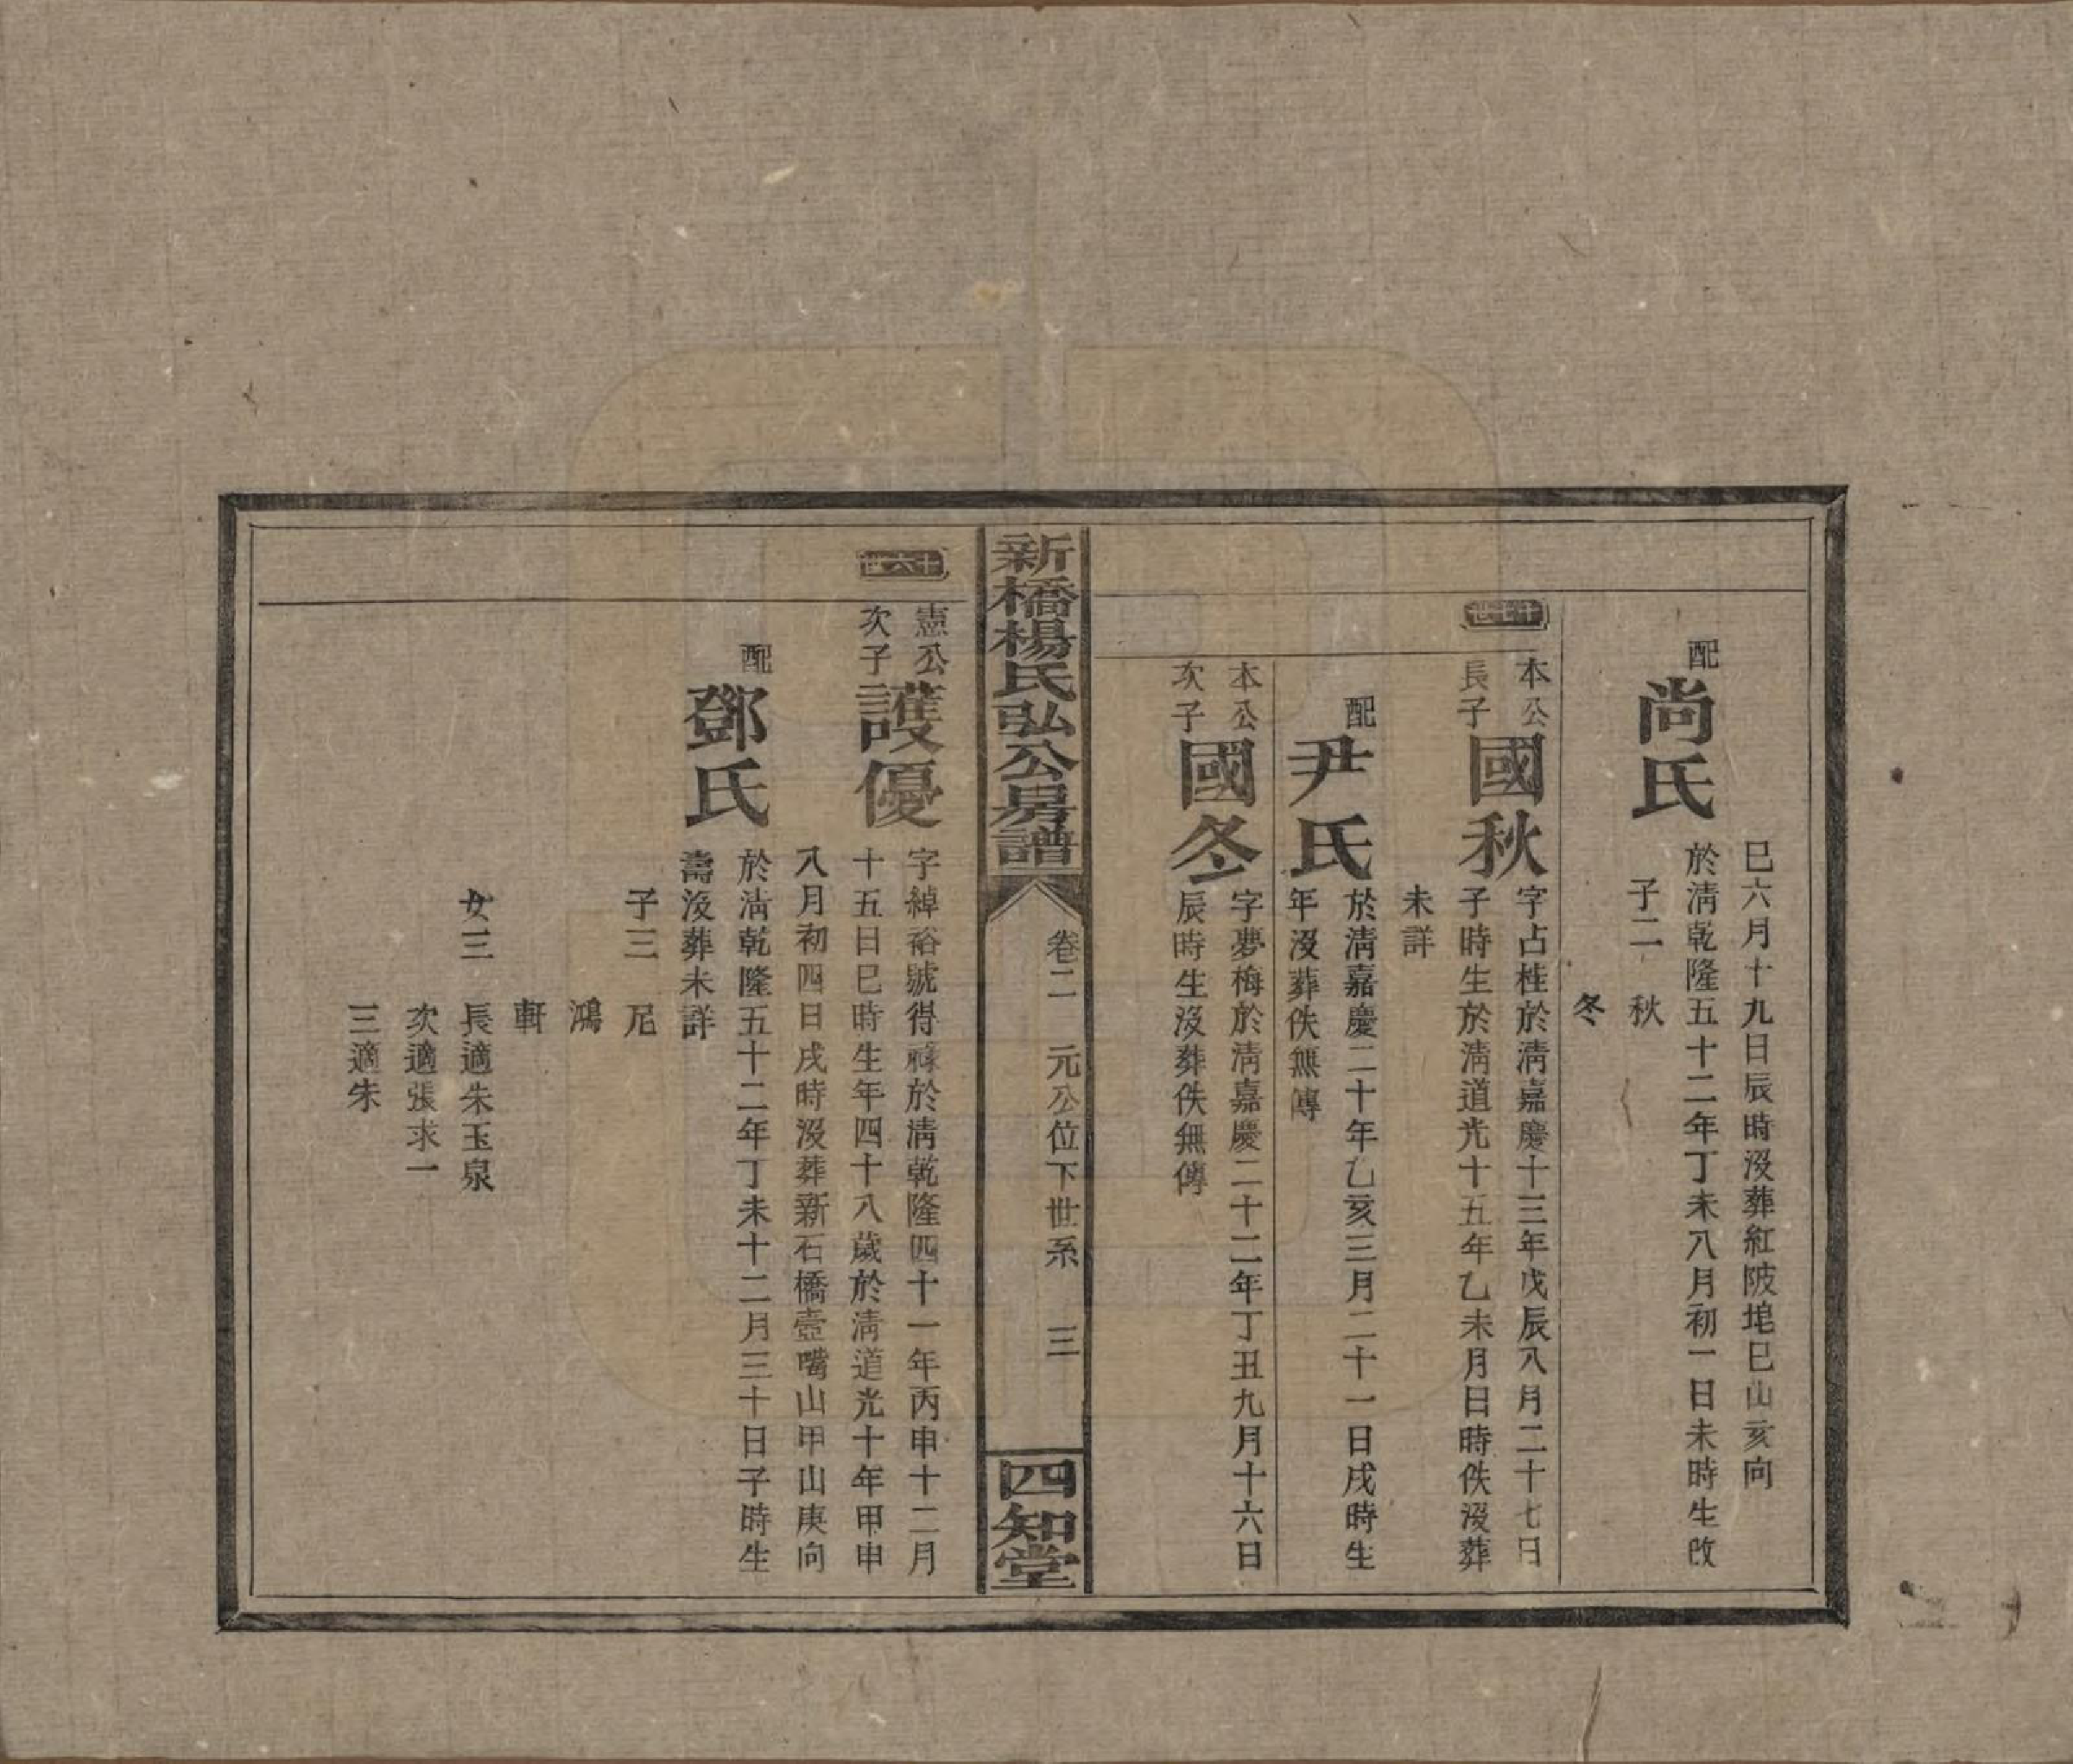 巳六月十九日辰時沒葬紅陂坉巳山亥向
配尚氏於淸乾隆五十二年丁未八月初一日未時生改
子二 秋
冬
十七世
本公長子國秋字占桂於淸嘉慶十三年戊辰八月二十七日
子時生於淸道光十五年乙未月日時佚沒葬
未詳
配尹氏於淸嘉慶二十年乙亥三月二十一日戌時生
年沒葬佚無傳
本公次子國冬字夢梅於淸嘉慶二十二年丁丑九月十六日
辰時生沒葬佚無傳
新橋楊氏弘公房譜
卷二 元公位下世系 三
四知堂
十六世
憲公次子護優字綽裕號得祿於淸乾隆四十一年丙申十二月
十五日巳時生年四十八歲於淸道光十年甲申
八月初四日戌時沒葬新石橋壼嘴山甲山庚向
配鄧氏於淸乾隆五十二年丁未十二月三十日子時生
壽沒葬未詳
子三 尼
鴻
軒
女三 長適朱玉泉
次適張求一
三適朱